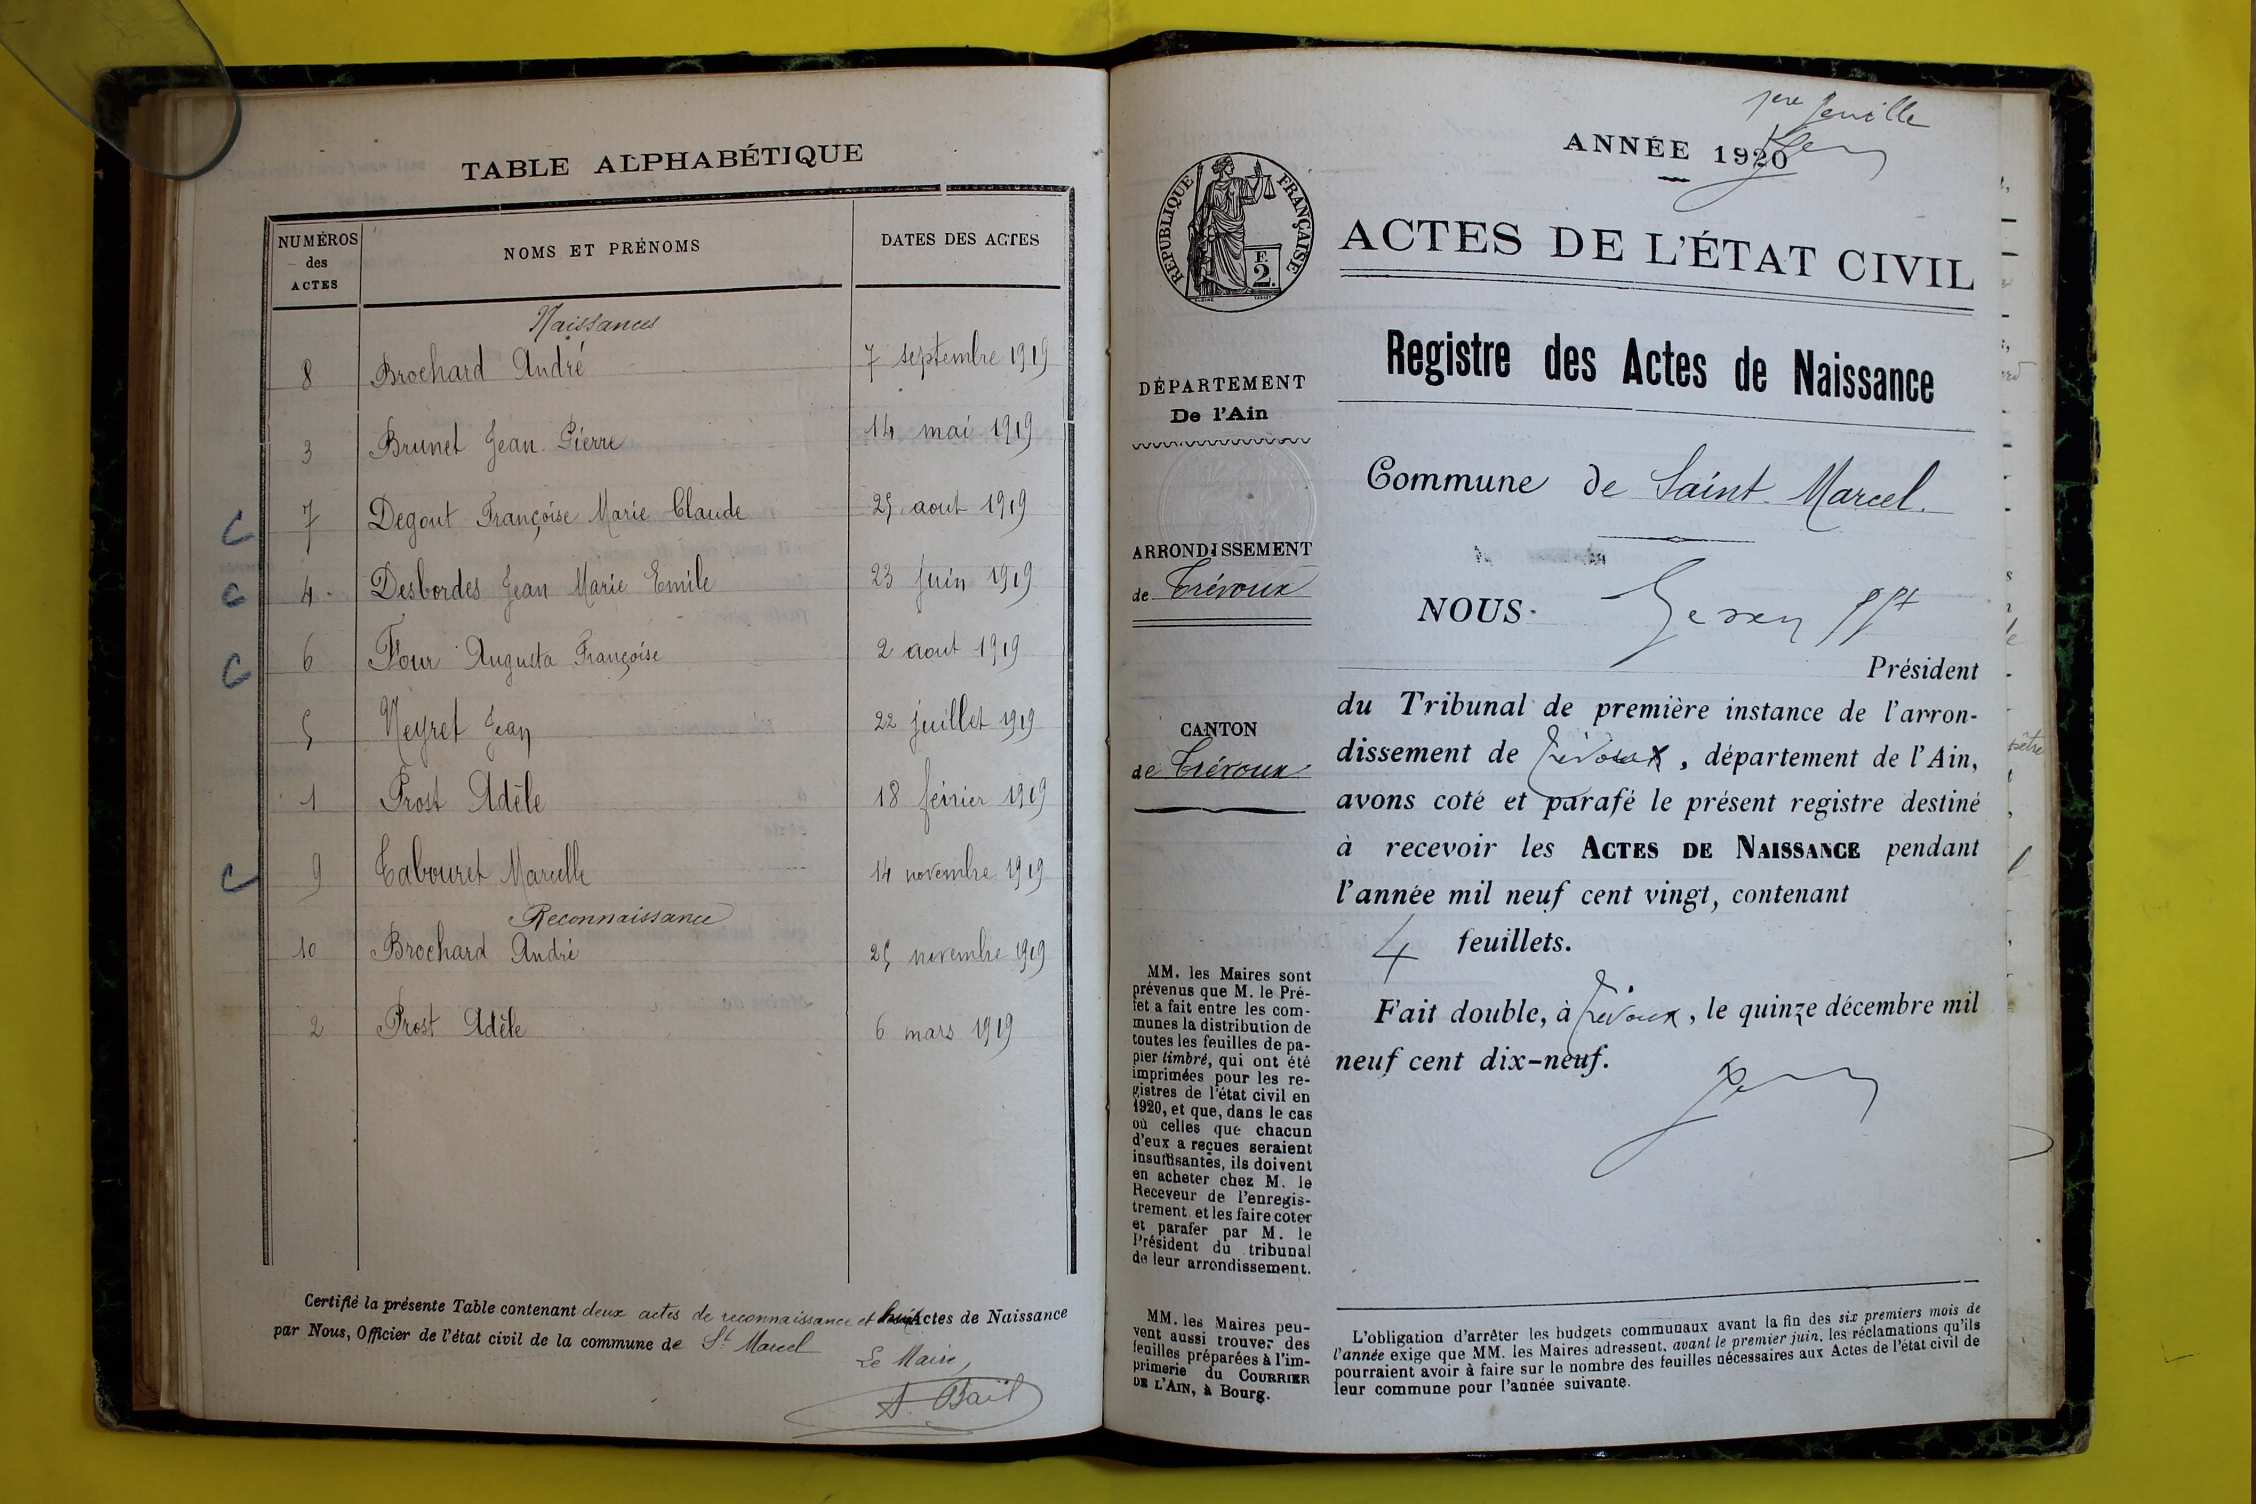 TABLE ALPHABÉTIQUE
NUMÉROS des ACTES
NOMS ET PRÉNOMS
DATES DES ACTES
Naissances
8 Brochard André 7 septembre 1919
3 Brunet Jean Pierre 14 mai 1919
C 7 Degout Françoise Marie Claude 25 aout 1919
C 4 Desbordes Jean Marie Emile 23 juin 1919
C 6 Four Augusta Françoise 2 aout 1919
5 Neyret Jean 22 juillet 1919
1 Prost Adèle 18 février 1919
C 9 Tabouret Marcelle 14 novembre 1919
Reconnaissance
10 Brochard André 25 novembre 1919
2 Prost Adèle 6 mars 1919
Certifié la présente Table contenant deux actes de reconnaissance et huit Actes de Naissance
par Nous, Officier de l'état civil de la commune de St Marcel
Le Maire,
A. Bail
1ere feuille
ANNÉE 1920
RÉPUBLIQUE FRANÇAISE
F.
2.
ACTES DE L'ÉTAT CIVIL
Registre des Actes de Naissance
DÉPARTEMENT
De l'Ain
ARRONDISSEMENT
de Trévoux
CANTON
de Trévoux
MM. les Maires sont
prévenus que M. le Pré-
fet a fait entre les com-
munes la distribution de
toutes les feuilles de pa-
pier timbré, qui ont été
imprimées pour les re-
gistres de l'état civil en
1920, et que, dans le cas
où celles que chacun
d'eux a reçues seraient
insuffisantes, ils doivent
en acheter chez M. le
Receveur de l'enregis-
trement et les faire coter
et parafer par M. le
Président du tribunal
de leur arrondissement.
MM. les Maires peu-
vent aussi trouver des
feuilles préparées à l'im-
primerie du COURRIER
DE L'AIN, à Bourg.
Commune de Saint-Marcel.
NOUS
Président
du Tribunal de première instance de l'arron-
dissement de Trévoux, département de l'Ain,
avons coté et parafé le présent registre destiné
à recevoir les ACTES DE NAISSANCE pendant
l'année mil neuf cent vingt, contenant
4 feuillets.
Fait double, à Trévoux, le quinze décembre mil
neuf cent dix-neuf.
L'obligation d'arrêter les budgets communaux avant la fin des six premiers mois de
l'année exige que MM. les Maires adressent, avant le premier juin, les réclamations qu'ils
pourraient avoir à faire sur le nombre des feuilles nécessaires aux Actes de l'état civil de
leur commune pour l'année suivante.